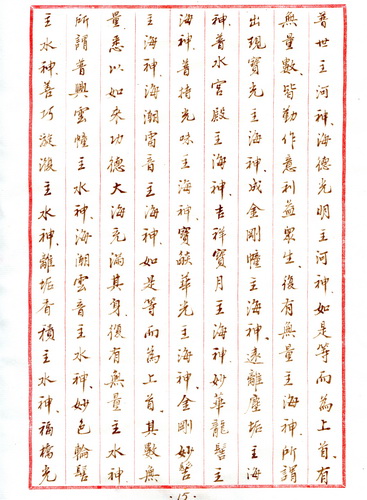 普世主河神、海德光明主河神、如是等而為上首、有
無量數、皆勤作意利益眾生、復有無量主海神、所謂
出現寶光主海神、成金剛幢主海神、遠離塵垢主海
神、普水宮殿主海神、吉祥寶月主海神、妙華龍髻主
海神、普持光味主海神、寶燄華光主海神、金剛妙髻
主海神、海潮雷音主海神、如是等而為上首、其數無
量、悉以如來功德大海充滿其身、復有無量主水神、
所謂普興雲幢主水神、海潮雲音主水神、妙色輪髻
主水神、善巧漩澓主水神、離垢香積主水神、福橋光
·15·